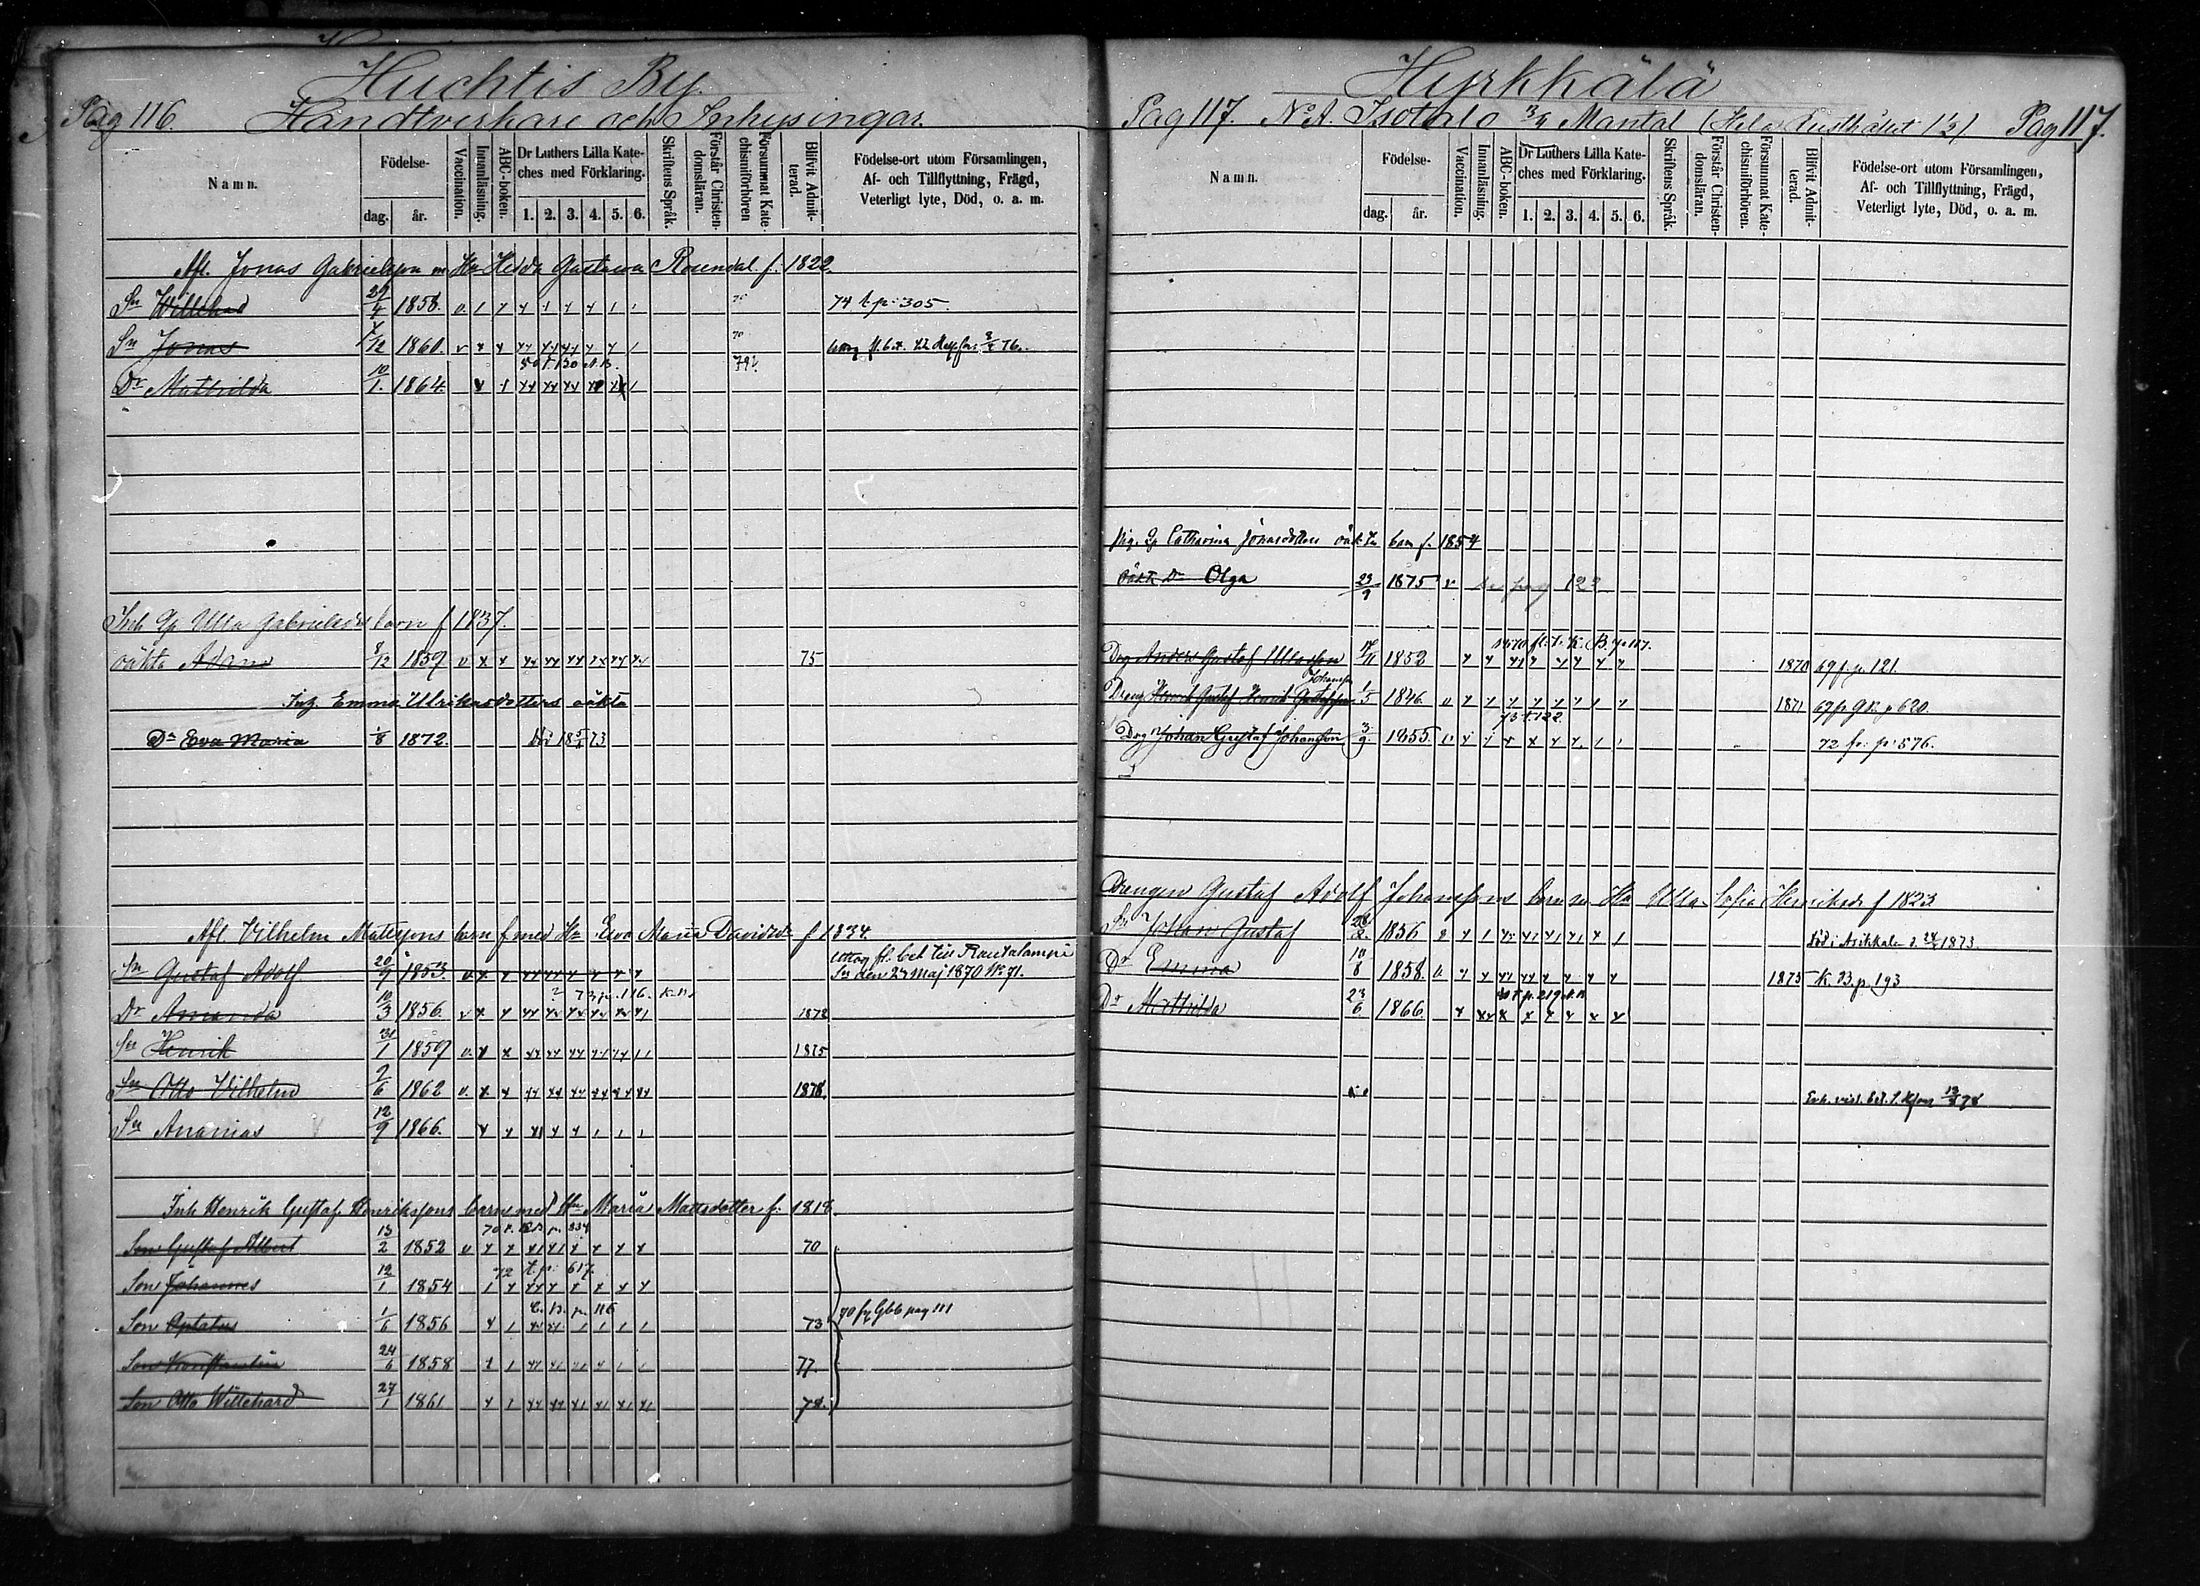 Huchtis By.
Pag 116. Handtverkare och Inhysingar.
Namn.
Födelse-
dag. år.
Vaccination.
Innanläsning.
ABC-boken.
Dr Luthers Lilla Kate-
ches med Förklaring.
1. 2. 3. 4. 5. 6.
Skriftens Språk.
Förstår Christen-
domsläran.
Försummat Kate-
chismiförhören
Blifvit Admit-
terad.
Födelse-ort utom Församlingen,
Af- och Tillflyttning, Frägd,
Veterligt lyte, Död, o. a. m.
Afl. Jonas Gabrielsson m Hu Hedda Gustava Rosendal f. 1822.
Sn Willehad 29/4 1858. 74 t. p. 305.
Sn Jonas 1/12 1860. 76.
Dr Mathilda 10/1 1864.
Inh Ulla Gabrielsdr barn f 1837.
oäkta Adam 8/12 1859 75
Inh. Emma Ulrikasdotters oäkta
Dr Eva Maria 1/8 1872. 73
Afl. Vilhelm Matssons barn f med Hu Eva Maria Davidsdr f 1834.
Sn Gustaf Adolf 20/9 1853. uttog fl. bet till Rautalampi
Sn den 27 Maj 1870 No 71.
Dr Amanda 10/3 1856. 73 p. 116. 1872
Sn Henrik 31/1 1859 1875
Sn Otto Vilhelm 7/6 1862 1878.
Sn Ananias 12/9 1866.
Inh Henrik Gustaf Henrikssons barn med Hu Maria Mattsdotter f. 1818
70 t. p. 334
Son Gustaf Albert 13/2 1852 70
72 t. p. 617.
Son Johannes 12/1 1854
p. 116
Son Optatus 1/6 1856 73 70 fr. pag 111
Son Konstantin 24/6 1858 77.
Son Otto Willehard 27/1 1861 78.
Hyrkkälä
Pag 117. No 1. Isotalo 3/4 Mantal (Hela 1 1/2) Pag 117.
Namn.
Födelse-
dag. år.
Vaccination.
Innanläsning.
ABC-boken.
Dr Luthers Lilla Kate-
ches med Förklaring.
1. 2. 3. 4. 5. 6.
Skriftens Språk.
Förstår Christen-
domsläran.
Försummat Kate-
chismiförhören
Blifvit Admit-
terad.
Födelse-ort utom Församlingen,
Af- och Tillflyttning, Frägd,
Veterligt lyte, Död, o. a. m.
Catharina Jonasdotters barn f. 1854
oäkta Dr Olga 23/9 1875 v pag 122
Drg Anders Gustaf Ullasson 1852 1870 69 f. p. 121.
Johansson
Dreng Henrik Gustaf 1/5 1846 1871 p 620.
73 t. 122.
Drg Johan Gustaf Johansson 3/9 1855. 72 fr. p. 576.
Drengen Gustaf Adolf Johanssons barn m Hu Ulla Sofia Henriksdr f 1823
Sn Johan Gustaf 1856 Död i Asikkala d. 1873.
Dr Emma 10/8 1858 1875 K. B. p. 193
Dr Mathilda 23/6 1866